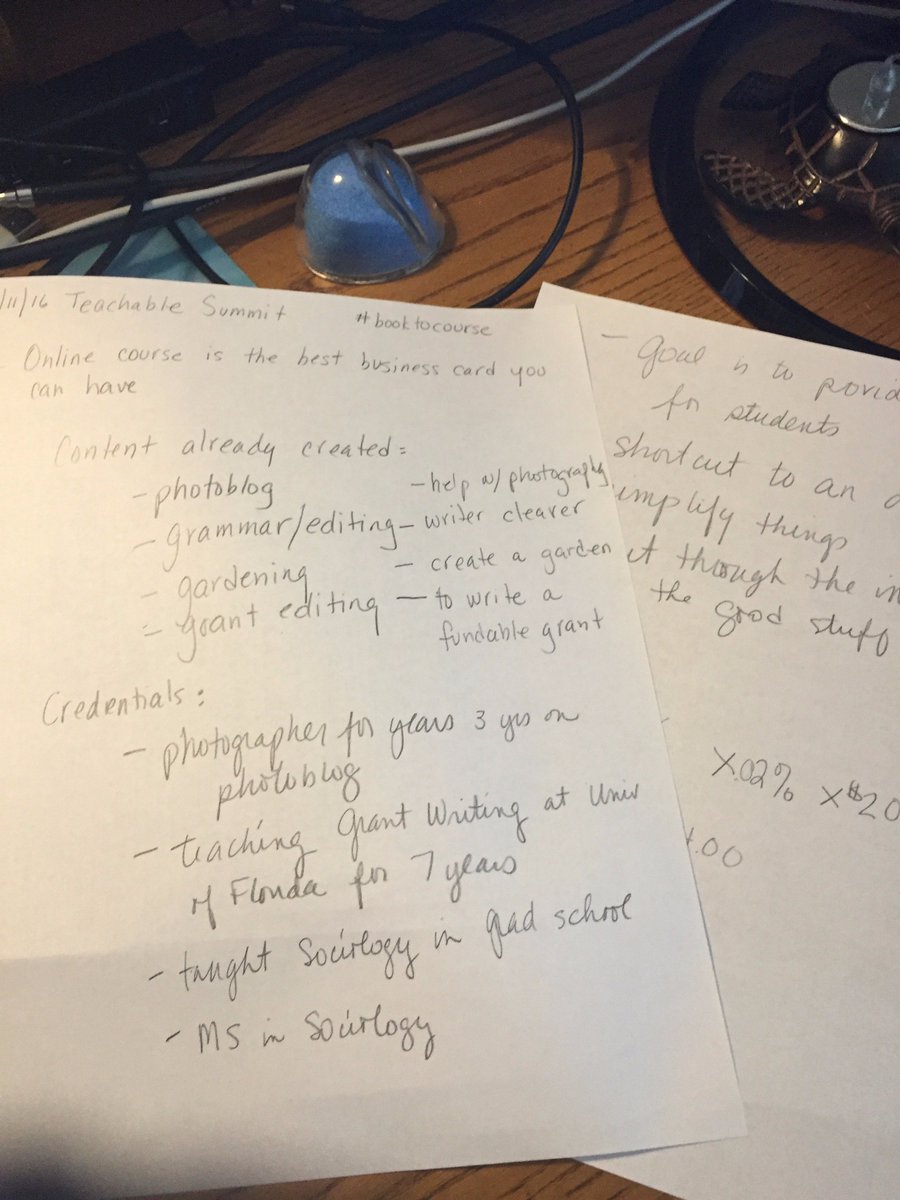 /11/16 Teachable Summit #booktocourse
Online course is the best business card you
can have
Content already created:
- photoblog - help w/ photography
- grammar/editing - writer cleaver
- gardening - create a garden
- grant editing - to write a
fundable grant
Credentials:
- photographer for years 3 yrs on
photoblog
- teaching Grant Writing at Univ
of Florida for 7 years
- taught Sociology in grad school
- MS in Sociology
- Goal is to povid
for students
shortcut to an
implify things
t through the in
the good stuff
X.02% X$20
.00